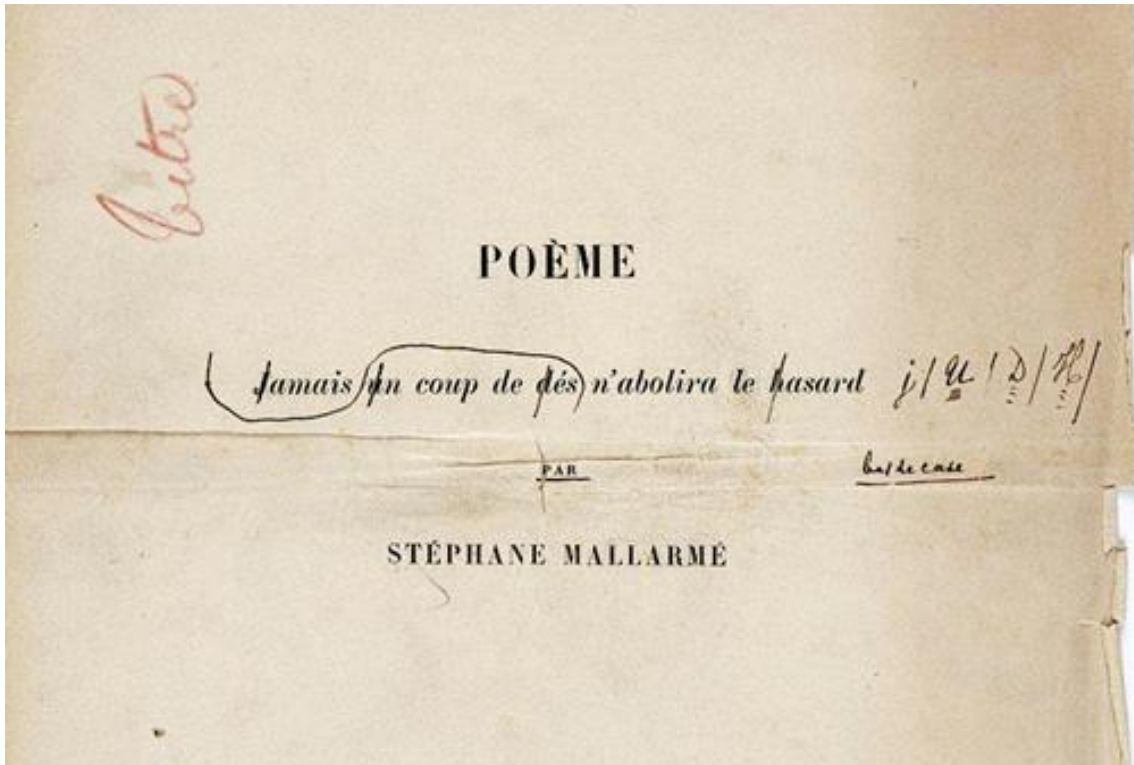 titre
POÈME
Jamais un coup de dés n'abolira le hasard j/ U/ D/ H/
PAR bas de case
STÉPHANE MALLARMÉ